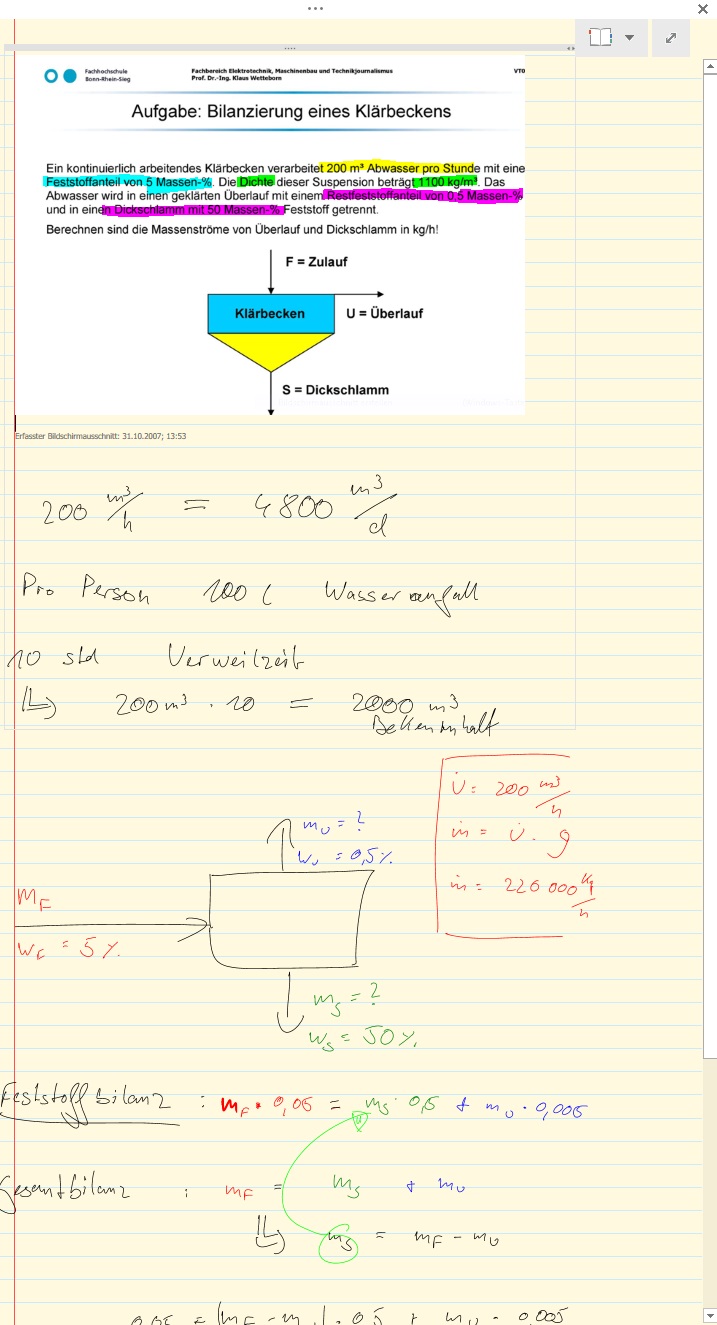 Fachhochschule
Bonn-Rhein-Sieg
Fachbereich Elektrotechnik, Maschinenbau und Technikjournalismus
Prof. Dr.-Ing. Klaus Wetteborn
VT0
Aufgabe: Bilanzierung eines Klärbeckens
Ein kontinuierlich arbeitendes Klärbecken verarbeitet 200 m³ Abwasser pro Stunde mit eine
Feststoffanteil von 5 Massen-%. Die Dichte dieser Suspension beträgt 1100 kg/m³. Das
Abwasser wird in einen geklärten Überlauf mit einem Restfeststoffanteil von 0.5 Massen-%
und in einen Dickschlamm mit 50 Massen-% Feststoff getrennt.
Berechnen sind die Massenströme von Überlauf und Dickschlamm in kg/h!
F = Zulauf
Klärbecken
U = Überlauf
S = Dickschlamm
Erfasster Bildschirmausschnitt: 31.10.2007; 13:53
200 m³/h = 4800 m³/d
Pro Person 100 l Wasseranfall
10 std Verweilzeit
200m³ · 10 = 2000 m³
Beckeninhalt
U̇ = 200 m³/h
ṁ = U̇ · ρ
ṁ = 220 000 kg/h
m_U = ?
w_U = 0,5%
m_F
w_F = 5%
m_S = ?
w_S = 50%
Feststoffbilanz : m_F · 0,05 = m_S · 0,5 + m_U · 0,005
Gesamtbilanz : m_F = m_S + m_U
m_S = m_F - m_U
0,05 = (m_F - m_U) · 0,5 + m_U · 0,005